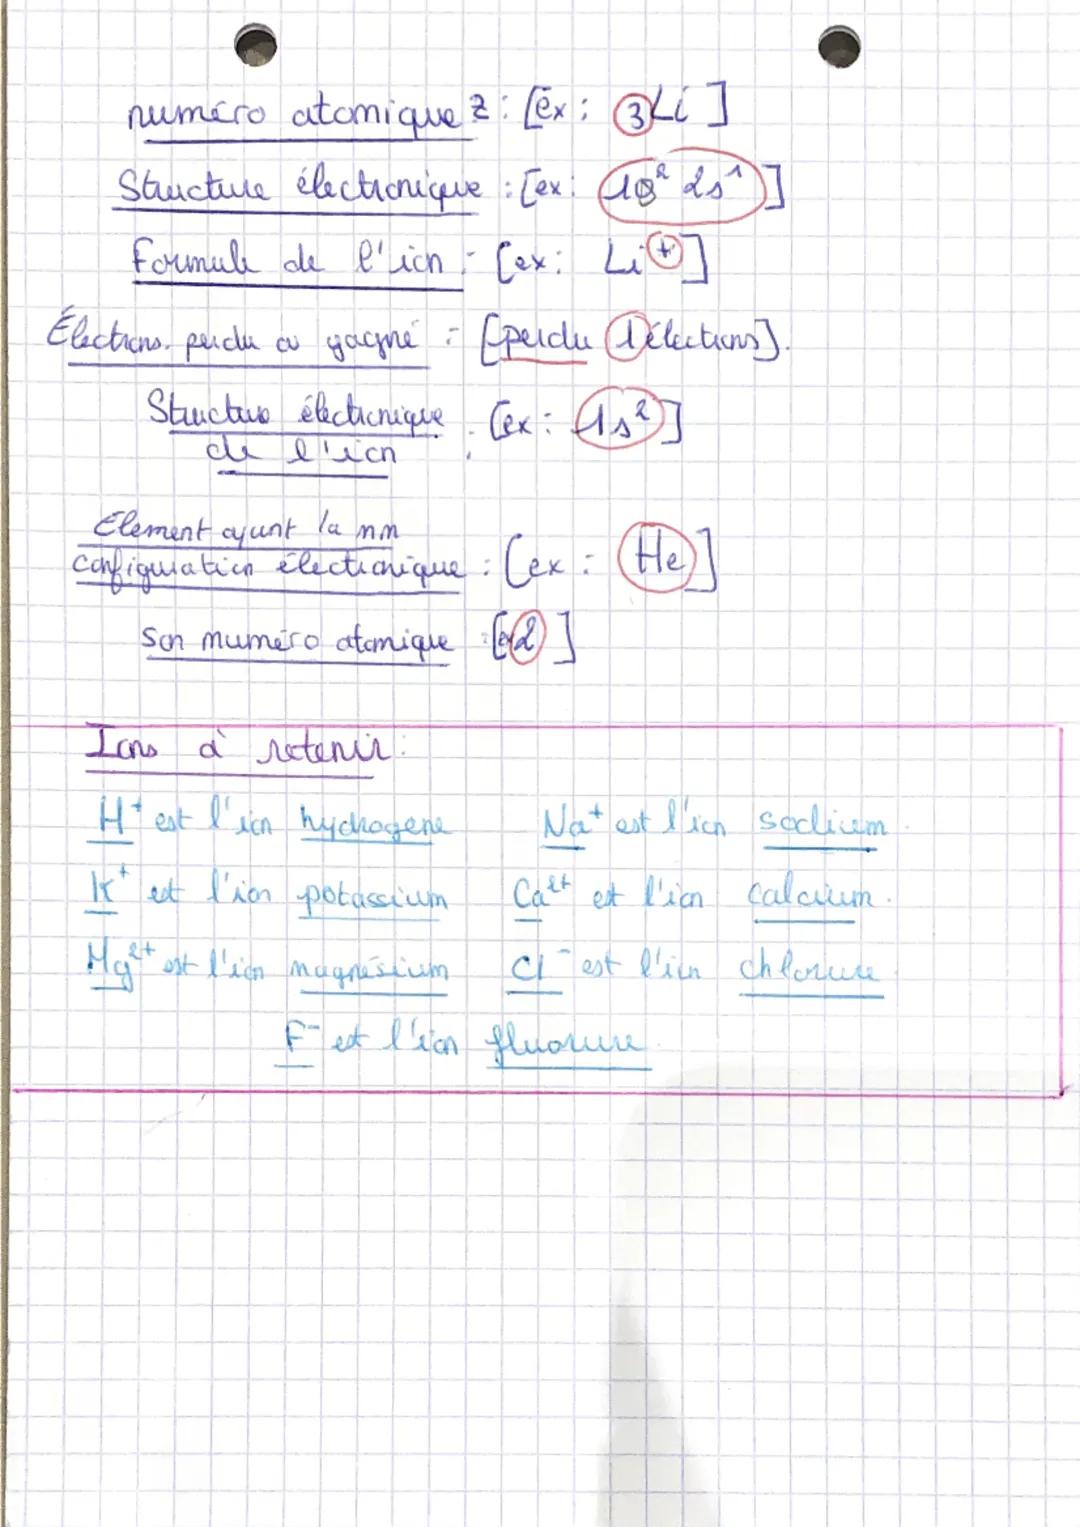 numéro atomique Z : [ex : 3Li]
Structure électronique : [ex : 1s² 2s¹]
Formule de l'ion : [ex : Li⁺]
Électrons perdu ou gagné : [perdu 1 électrons].
Structure électronique : [ex : 1s²]
de l'ion
Element ayant la mm
configuration électronique : [ex : He]
Son numéro atomique : [ex 2]
Ions à retenir :
H⁺ est l'ion hydrogène Na⁺ est l'ion sodium.
K⁺ est l'ion potassium Ca²⁺ est l'ion calcium.
Mg²⁺ est l'ion magnésium Cl⁻ est l'ion chlorure.
F⁻ est l'ion fluorure.